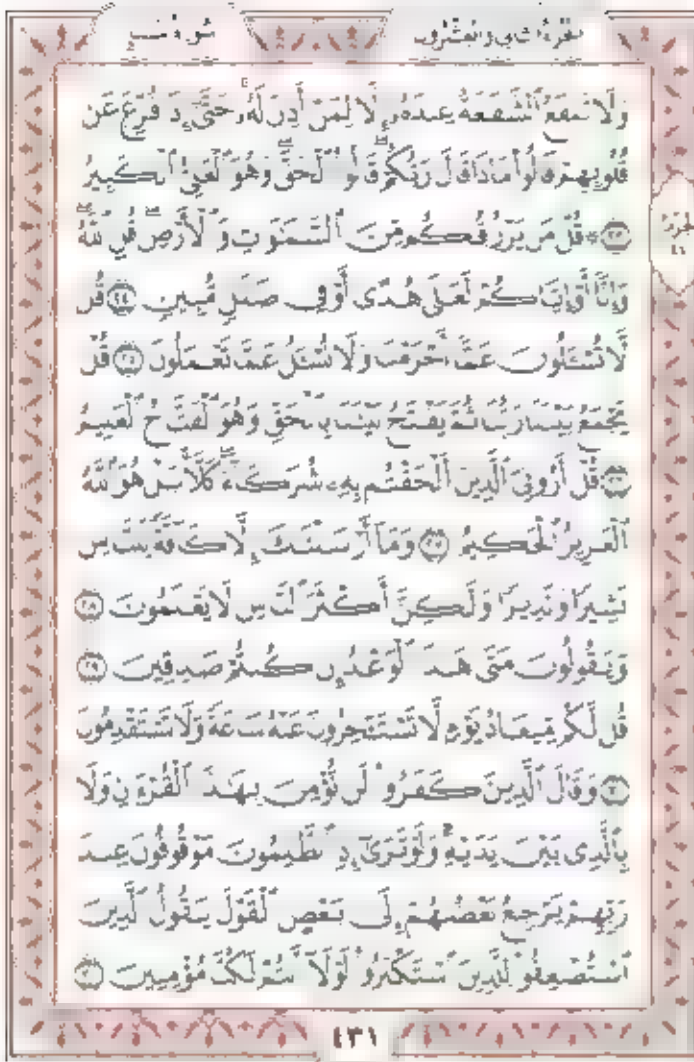 الجزء الثاني والعشرون سورة سبإ
وَلَا تَنفَعُ ٱلشَّفَٰعَةُ عِندَهُۥٓ إِلَّا لِمَنْ أَذِنَ لَهُۥ حَتَّىٰٓ إِذَا فُزِّعَ عَن
قُلُوبِهِمْ قَالُوا۟ مَاذَا قَالَ رَبُّكُمْ قَالُوا۟ ٱلْحَقَّ وَهُوَ ٱلْعَلِىُّ ٱلْكَبِيرُ
٢٣ ۞ قُلْ مَن يَرْزُقُكُم مِّنَ ٱلسَّمَٰوَٰتِ وَٱلْأَرْضِ قُلِ ٱللَّهُ
وَإِنَّآ أَوْ إِيَّاكُمْ لَعَلَىٰ هُدًى أَوْ فِى ضَلَٰلٍ مُّبِينٍ ٢٤ قُل
لَّا تُسْـَٔلُونَ عَمَّآ أَجْرَمْنَا وَلَا نُسْـَٔلُ عَمَّا تَعْمَلُونَ ٢٥ قُلْ
يَجْمَعُ بَيْنَنَا رَبُّنَا ثُمَّ يَفْتَحُ بَيْنَنَا بِٱلْحَقِّ وَهُوَ ٱلْفَتَّاحُ ٱلْعَلِيمُ
٢٦ قُلْ أَرُونِىَ ٱلَّذِينَ أَلْحَقْتُم بِهِۦ شُرَكَآءَ كَلَّا بَلْ هُوَ ٱللَّهُ
ٱلْعَزِيزُ ٱلْحَكِيمُ ٢٧ وَمَآ أَرْسَلْنَٰكَ إِلَّا كَآفَّةً لِّلنَّاسِ
بَشِيرًا وَنَذِيرًا وَلَٰكِنَّ أَكْثَرَ ٱلنَّاسِ لَا يَعْلَمُونَ ٢٨
وَيَقُولُونَ مَتَىٰ هَٰذَا ٱلْوَعْدُ إِن كُنتُمْ صَٰدِقِينَ ٢٩
قُل لَّكُم مِّيعَادُ يَوْمٍ لَّا تَسْتَـْٔخِرُونَ عَنْهُ سَاعَةً وَلَا تَسْتَقْدِمُونَ
٣٠ وَقَالَ ٱلَّذِينَ كَفَرُوا۟ لَن نُّؤْمِنَ بِهَٰذَا ٱلْقُرْءَانِ وَلَا
بِٱلَّذِى بَيْنَ يَدَيْهِ وَلَوْ تَرَىٰٓ إِذِ ٱلظَّٰلِمُونَ مَوْقُوفُونَ عِندَ
رَبِّهِمْ يَرْجِعُ بَعْضُهُمْ إِلَىٰ بَعْضٍ ٱلْقَوْلَ يَقُولُ ٱلَّذِينَ
ٱسْتُضْعِفُوا۟ لِلَّذِينَ ٱسْتَكْبَرُوا۟ لَوْلَآ أَنتُمْ لَكُنَّا مُؤْمِنِينَ ٣١
٤٣١